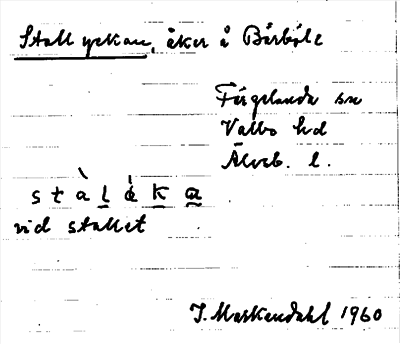 Stallyckan, åker å Bärböle
Färgelanda sn
Valbo hd
Älvsb. l.
vid stallet
J. Markendahl 1960